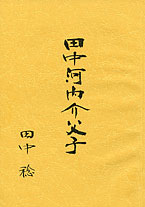 田中河内介父子
田中 稔